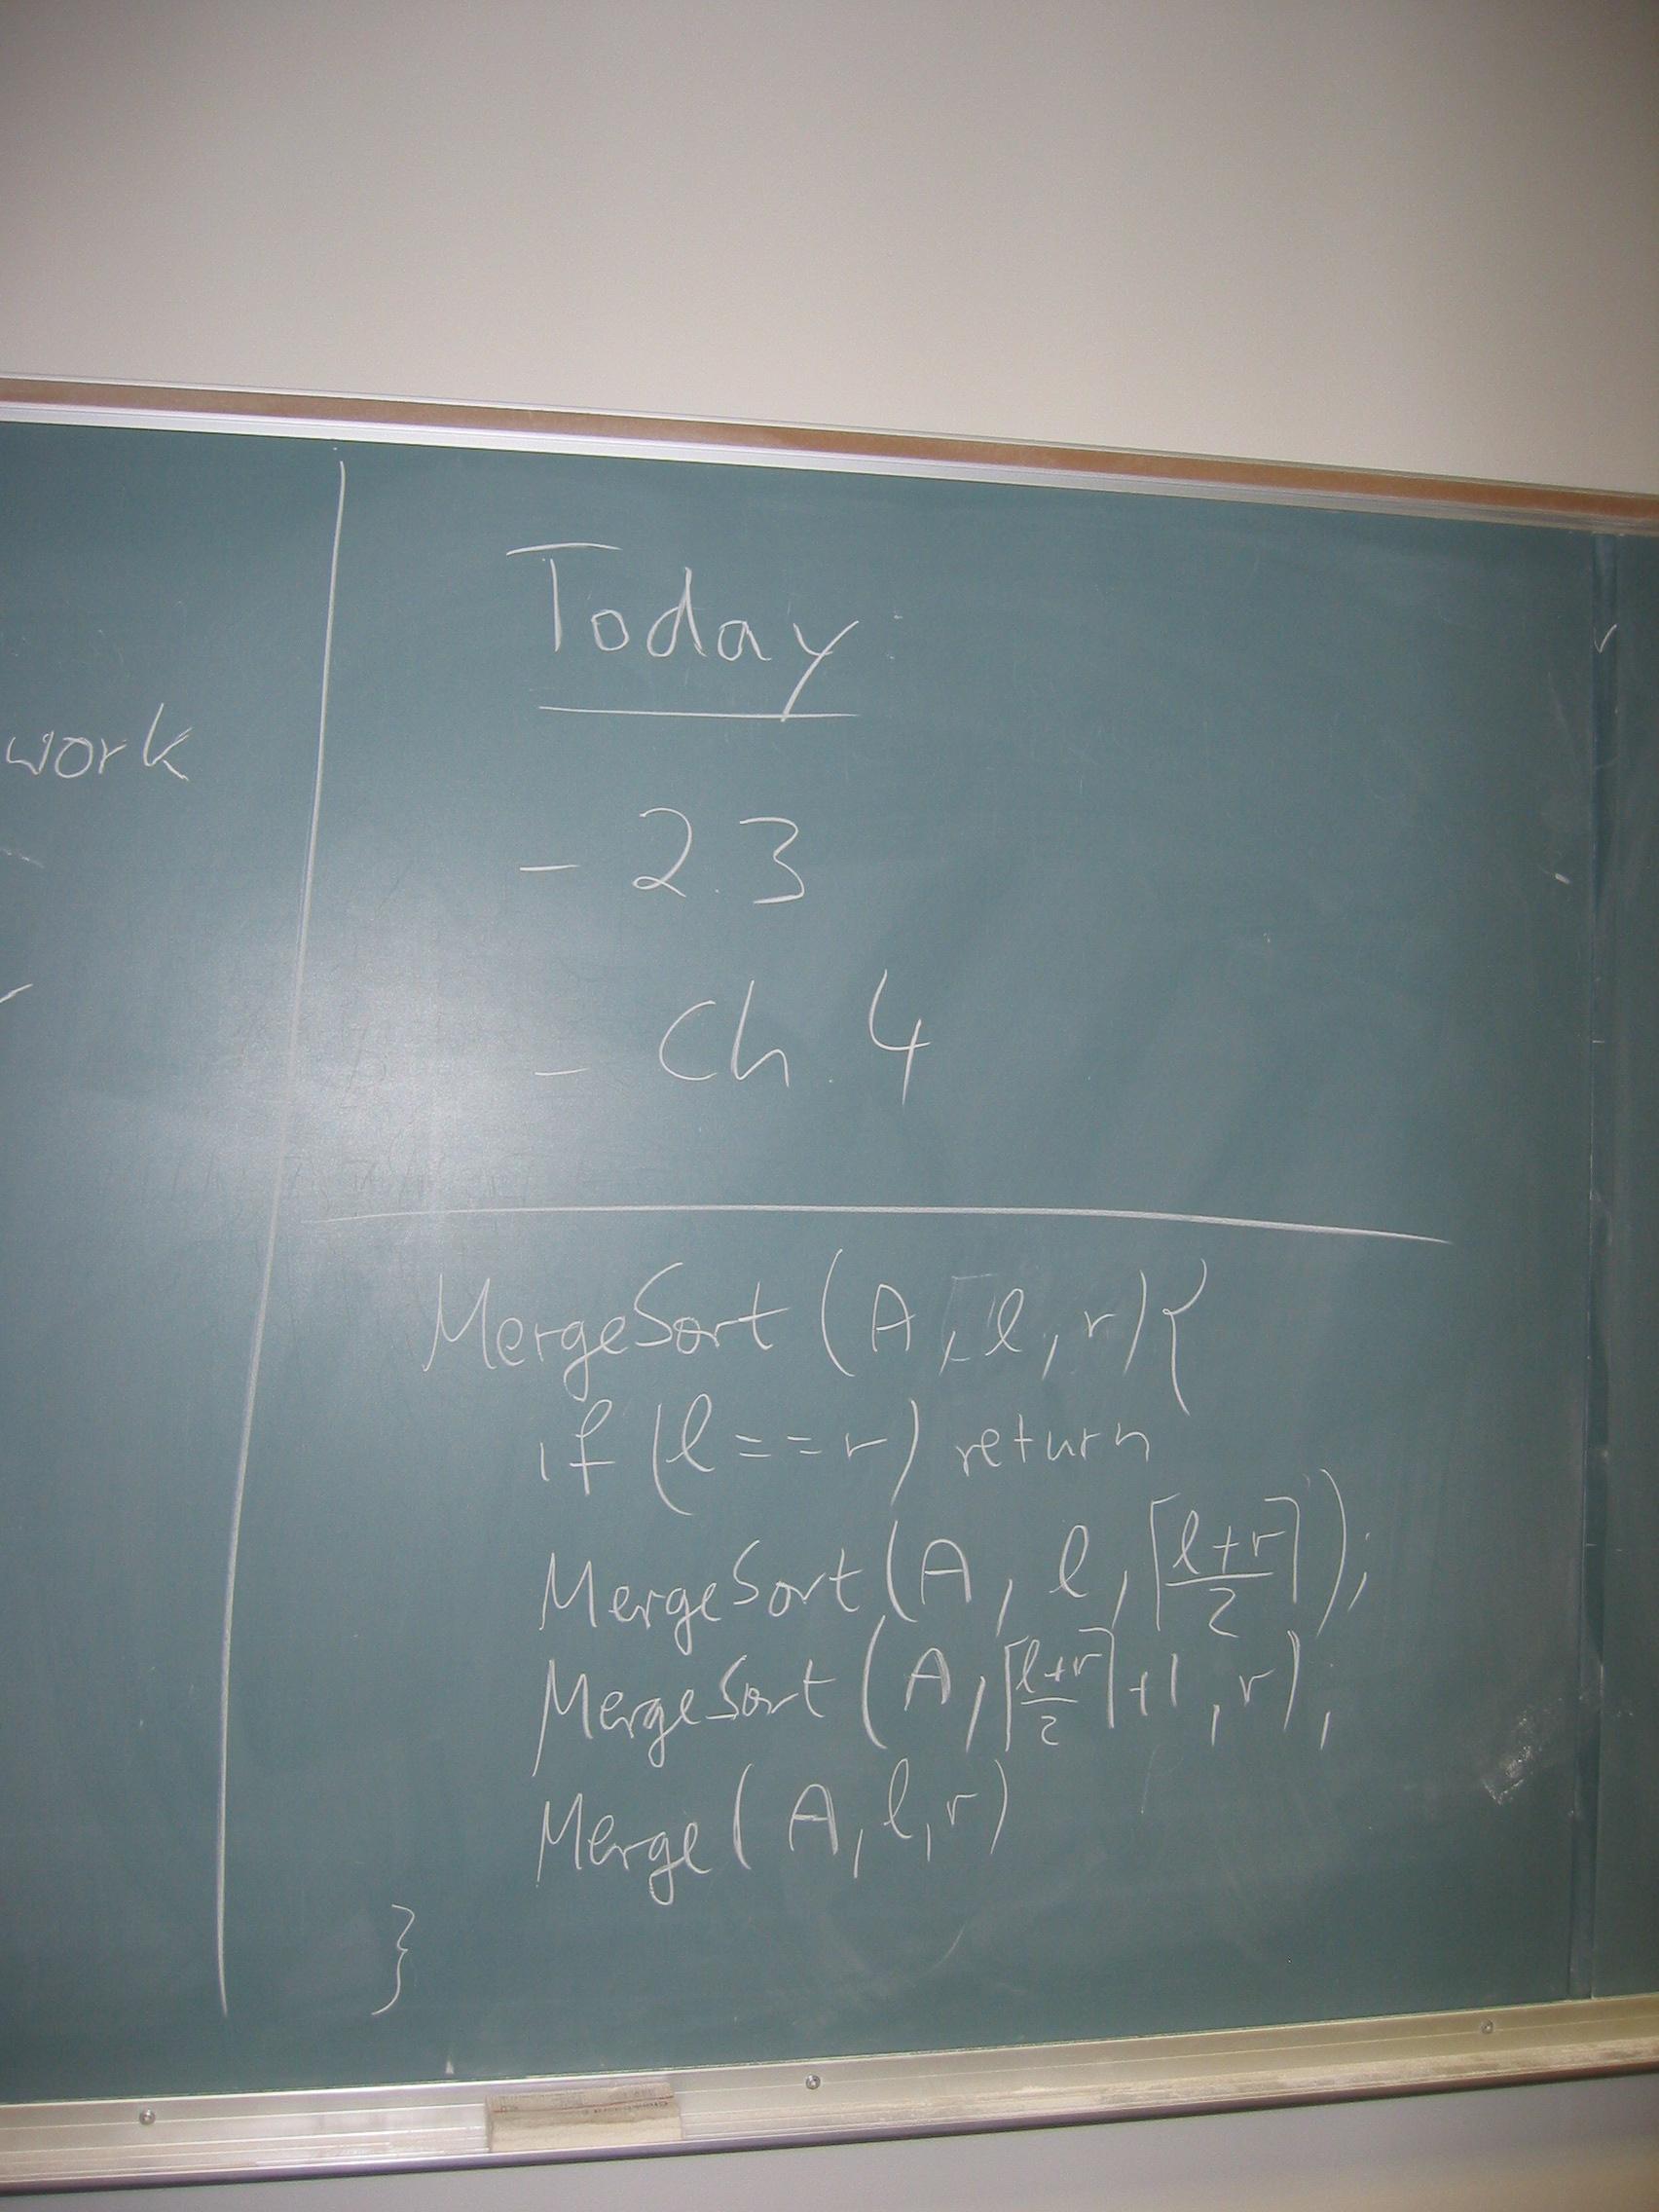 work
Today
- 2.3
- Ch. 4
MergeSort (A, l, r) {
if (l == r) return
MergeSort (A, l, ⌈(l+r)/2⌉);
MergeSort (A, ⌈(l+r)/2⌉+1, r);
Merge (A, l, r)
}